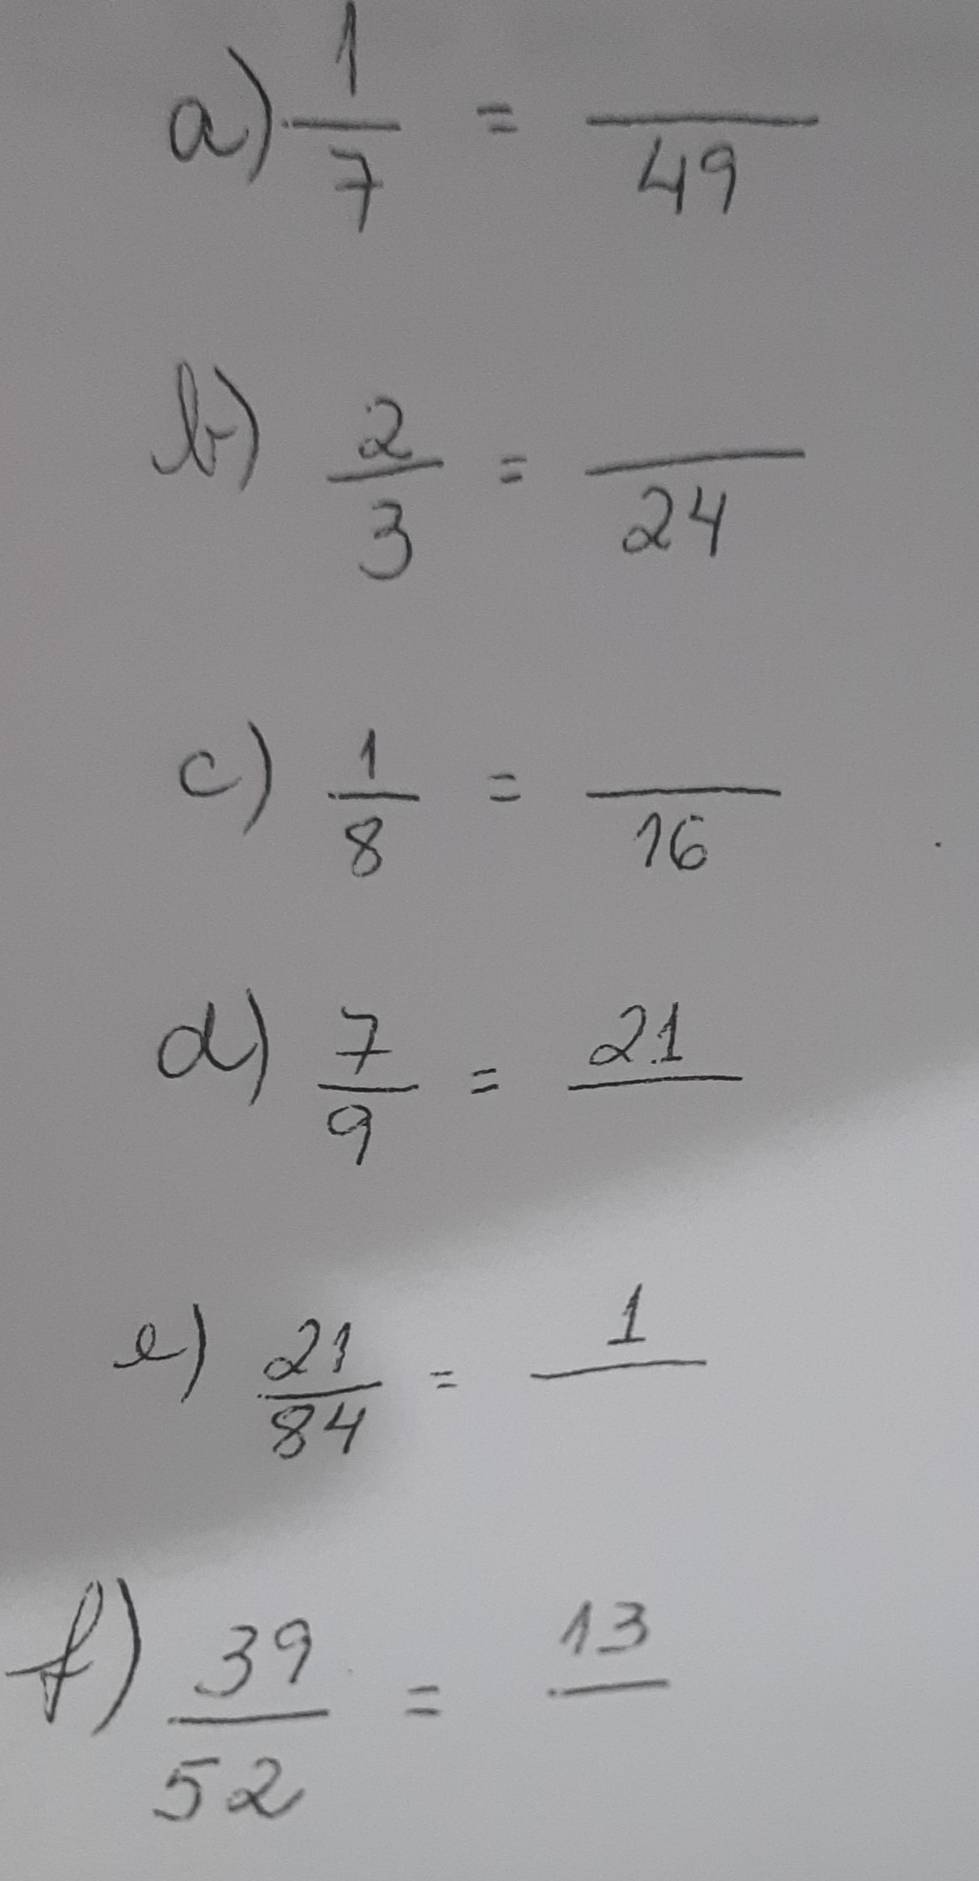 a) 1/7 = /49
b) 2/3 = /24
c) 1/8 = /16
d) 7/9 = 21/
e) 21/84 = 1/
f) 39/52 = 13/